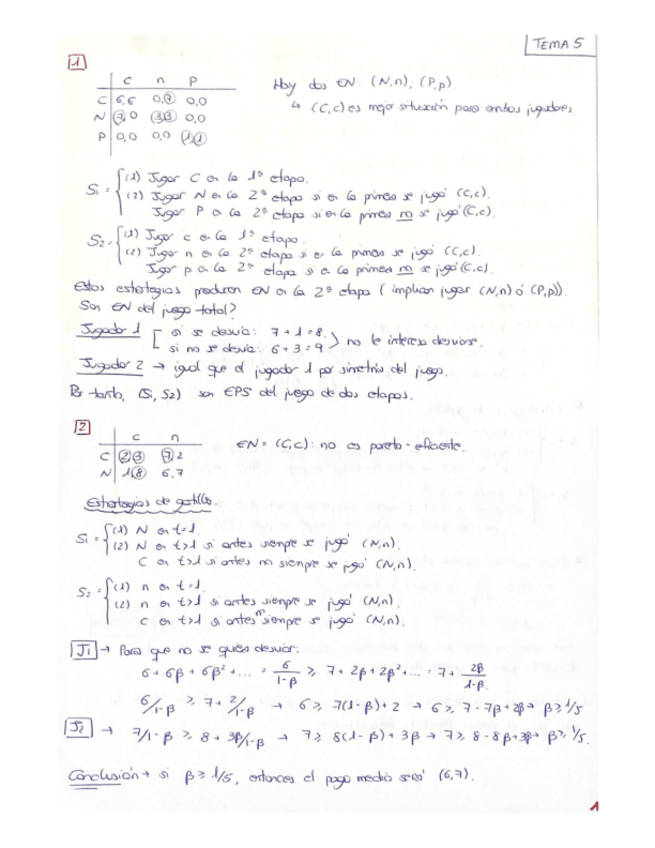 TEMA 5
1
C n P
C 6,6 0,7 0,0
N 7,0 3,3 0,0
P 0,0 0,0 1,1
Hay dos EN (N,n), (P,p).
↳ (C,c) es mejor situación para ambos jugadores.
S1 = (1) Jugar C en la 1ª etapa.
(2) Jugar N en la 2ª etapa si en la primera se jugó (C,c).
Jugar P en la 2ª etapa si en la primera no se jugó (C,c).
S2 = (1) Jugar c en la 1ª etapa.
(2) Jugar n en la 2ª etapa si en la primera se jugó (C,c).
Jugar p en la 2ª etapa si en la primera no se jugó (C,c).
Estas estrategias producen EN en la 2ª etapa (implican jugar (N,n) ó (P,p)).
Son EN del juego total?
Jugador 1 [ si se desvía: 7+1=8.
si no se desvía: 6+3=9. ) no le interesa desviarse.
Jugador 2 → igual que el jugador 1 por simetría del juego.
Por tanto, (S1, S2) son EPS del juego de dos etapas.
2
c n
C 2,3 7,2
N 1,8 6,7
EN = (C,c): no es pareto-eficiente.
Estrategias de gatillo.
S1 = (1) N en t=1.
(2) N en t>1 si antes siempre se jugó (N,n).
C en t>1 si antes no siempre se jugó (N,n).
S2 = (1) n en t=1.
(2) n en t>1 si antes siempre se jugó (N,n).
c en t>1 si antes no siempre se jugó (N,n).
J1 → Para que no se quiera desviar:
6 + 6β + 6β² + ... = 6/1-β ≥ 7 + 2β + 2β² + ... = 7 + 2β/1-β.
6/1-β ≥ 7 + 2/1-β → 6 ≥ 7(1-β)+2 → 6 ≥ 7-7β+2β → β ≥ 1/5
J2 → 7/1-β ≥ 8 + 3β/1-β → 7 ≥ 8(1-β)+3β → 7 ≥ 8-8β+3β → β ≥ 1/5.
Conclusión → si β ≥ 1/5, entonces el pago medio será (6,7).
1